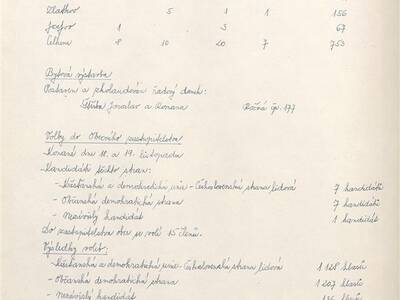 Zlatkov 5 1 1 156
Josefov 1 3 67
Celkem 8 10 20 7 753
Bytová výstavba
Postaven a zkolaudován řadový domek:
Jaroslav a Romana Ročná čp. 177
Volby do Obecního zastupitelstva
Konané dne 18. a 19. listopadu
Kandidáti těchto stran:
- Křesťanská a demokratická unie - Československá strana lidová 7 kandidátů
- Občanská demokratická strana 7 kandidátů
- Nezávislý kandidát 1 kandidát
Do zastupitelstva obce se volí 15 členů.
Výsledky voleb:
- Křesťanská a demokratická unie - Československá strana lidová 1 128 hlasů
- Občanská demokratická strana 1 207 hlasů
- Nezávislý kandidát hlasů